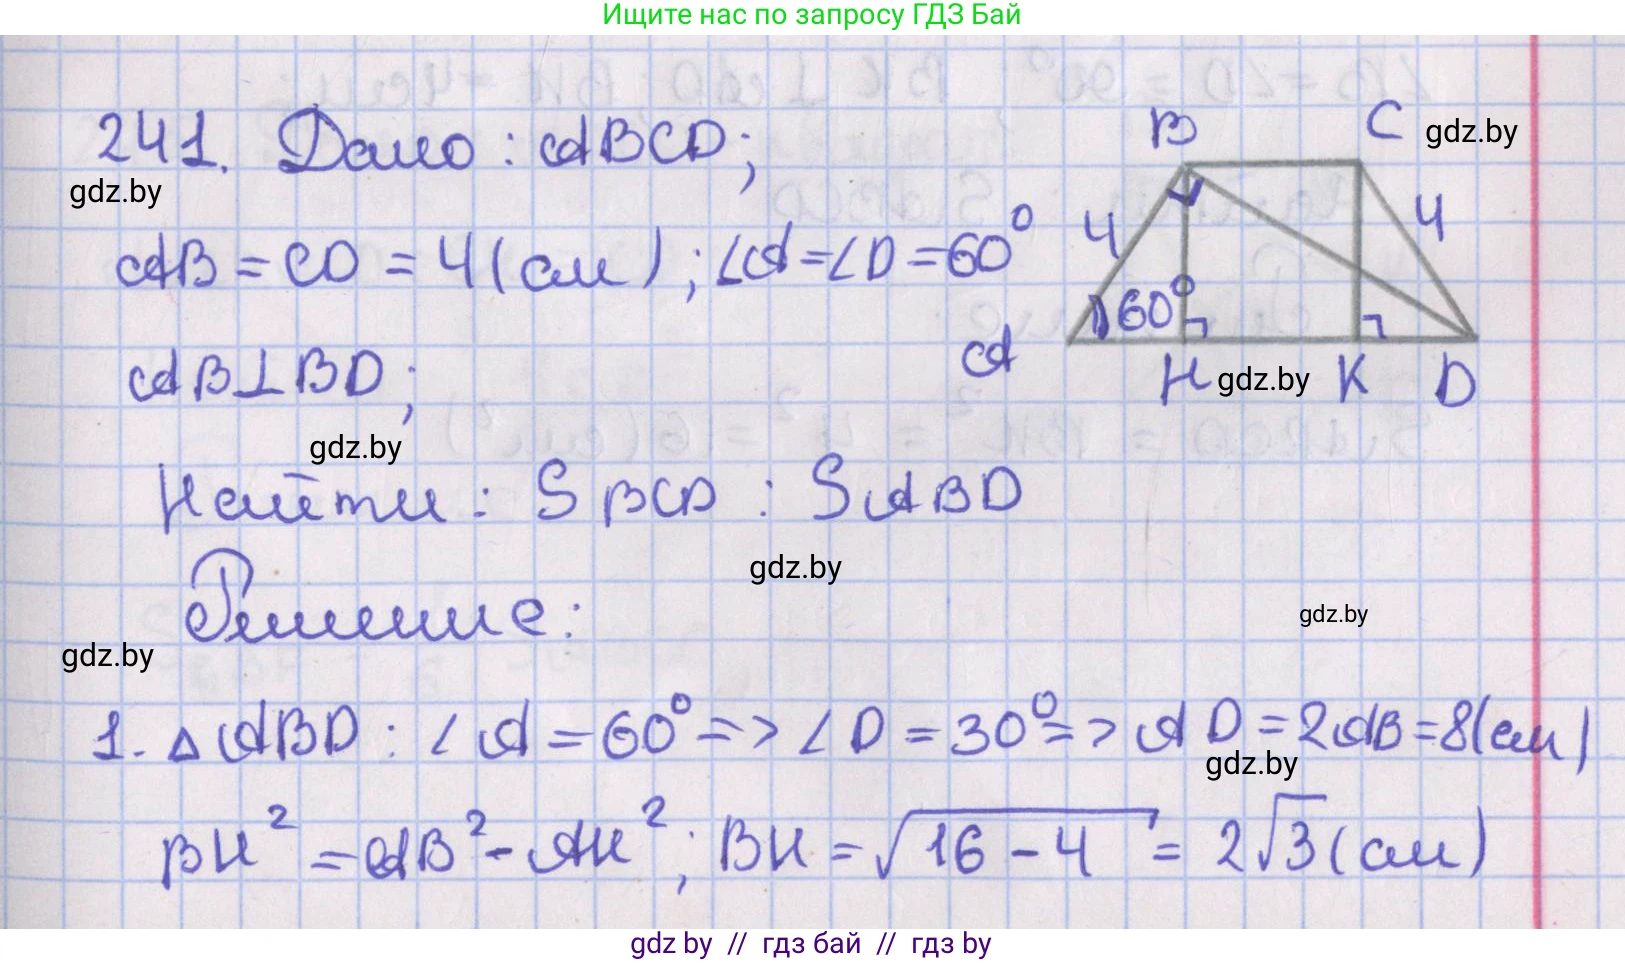 Ищите нас по запросу ГДЗ Бай
241. Дано: ABCD;
B C gdz.by
gdz.by
AB = CD = 4 (см); ∠A = ∠D = 60°
4 4
60°
AB ⊥ BD;
A H gdz.by K D
gdz.by
Найти: S BCD : S ABD
gdz.by
Решение:
gdz.by
gdz.by
1. △ABD: ∠A = 60° => ∠D = 30° => AD = 2AB = 8 (см)
gdz.by
BH² = AB² - AH²; BH = √16 - 4 = 2√3 (см)
gdz by // гдз бай // гдз by